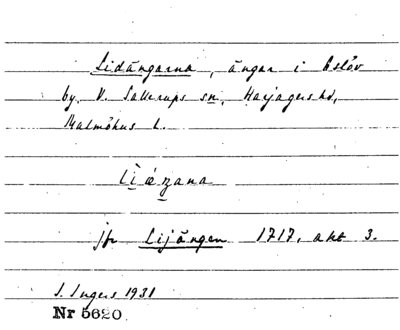 Lidängarna, ängar i Eslöv
by, V. Sallerups sn, Harjagers hd,
Malmöhus l.
jfr Lijängen 1717, akt 3.
I. Ingers 1931
Nr 5620